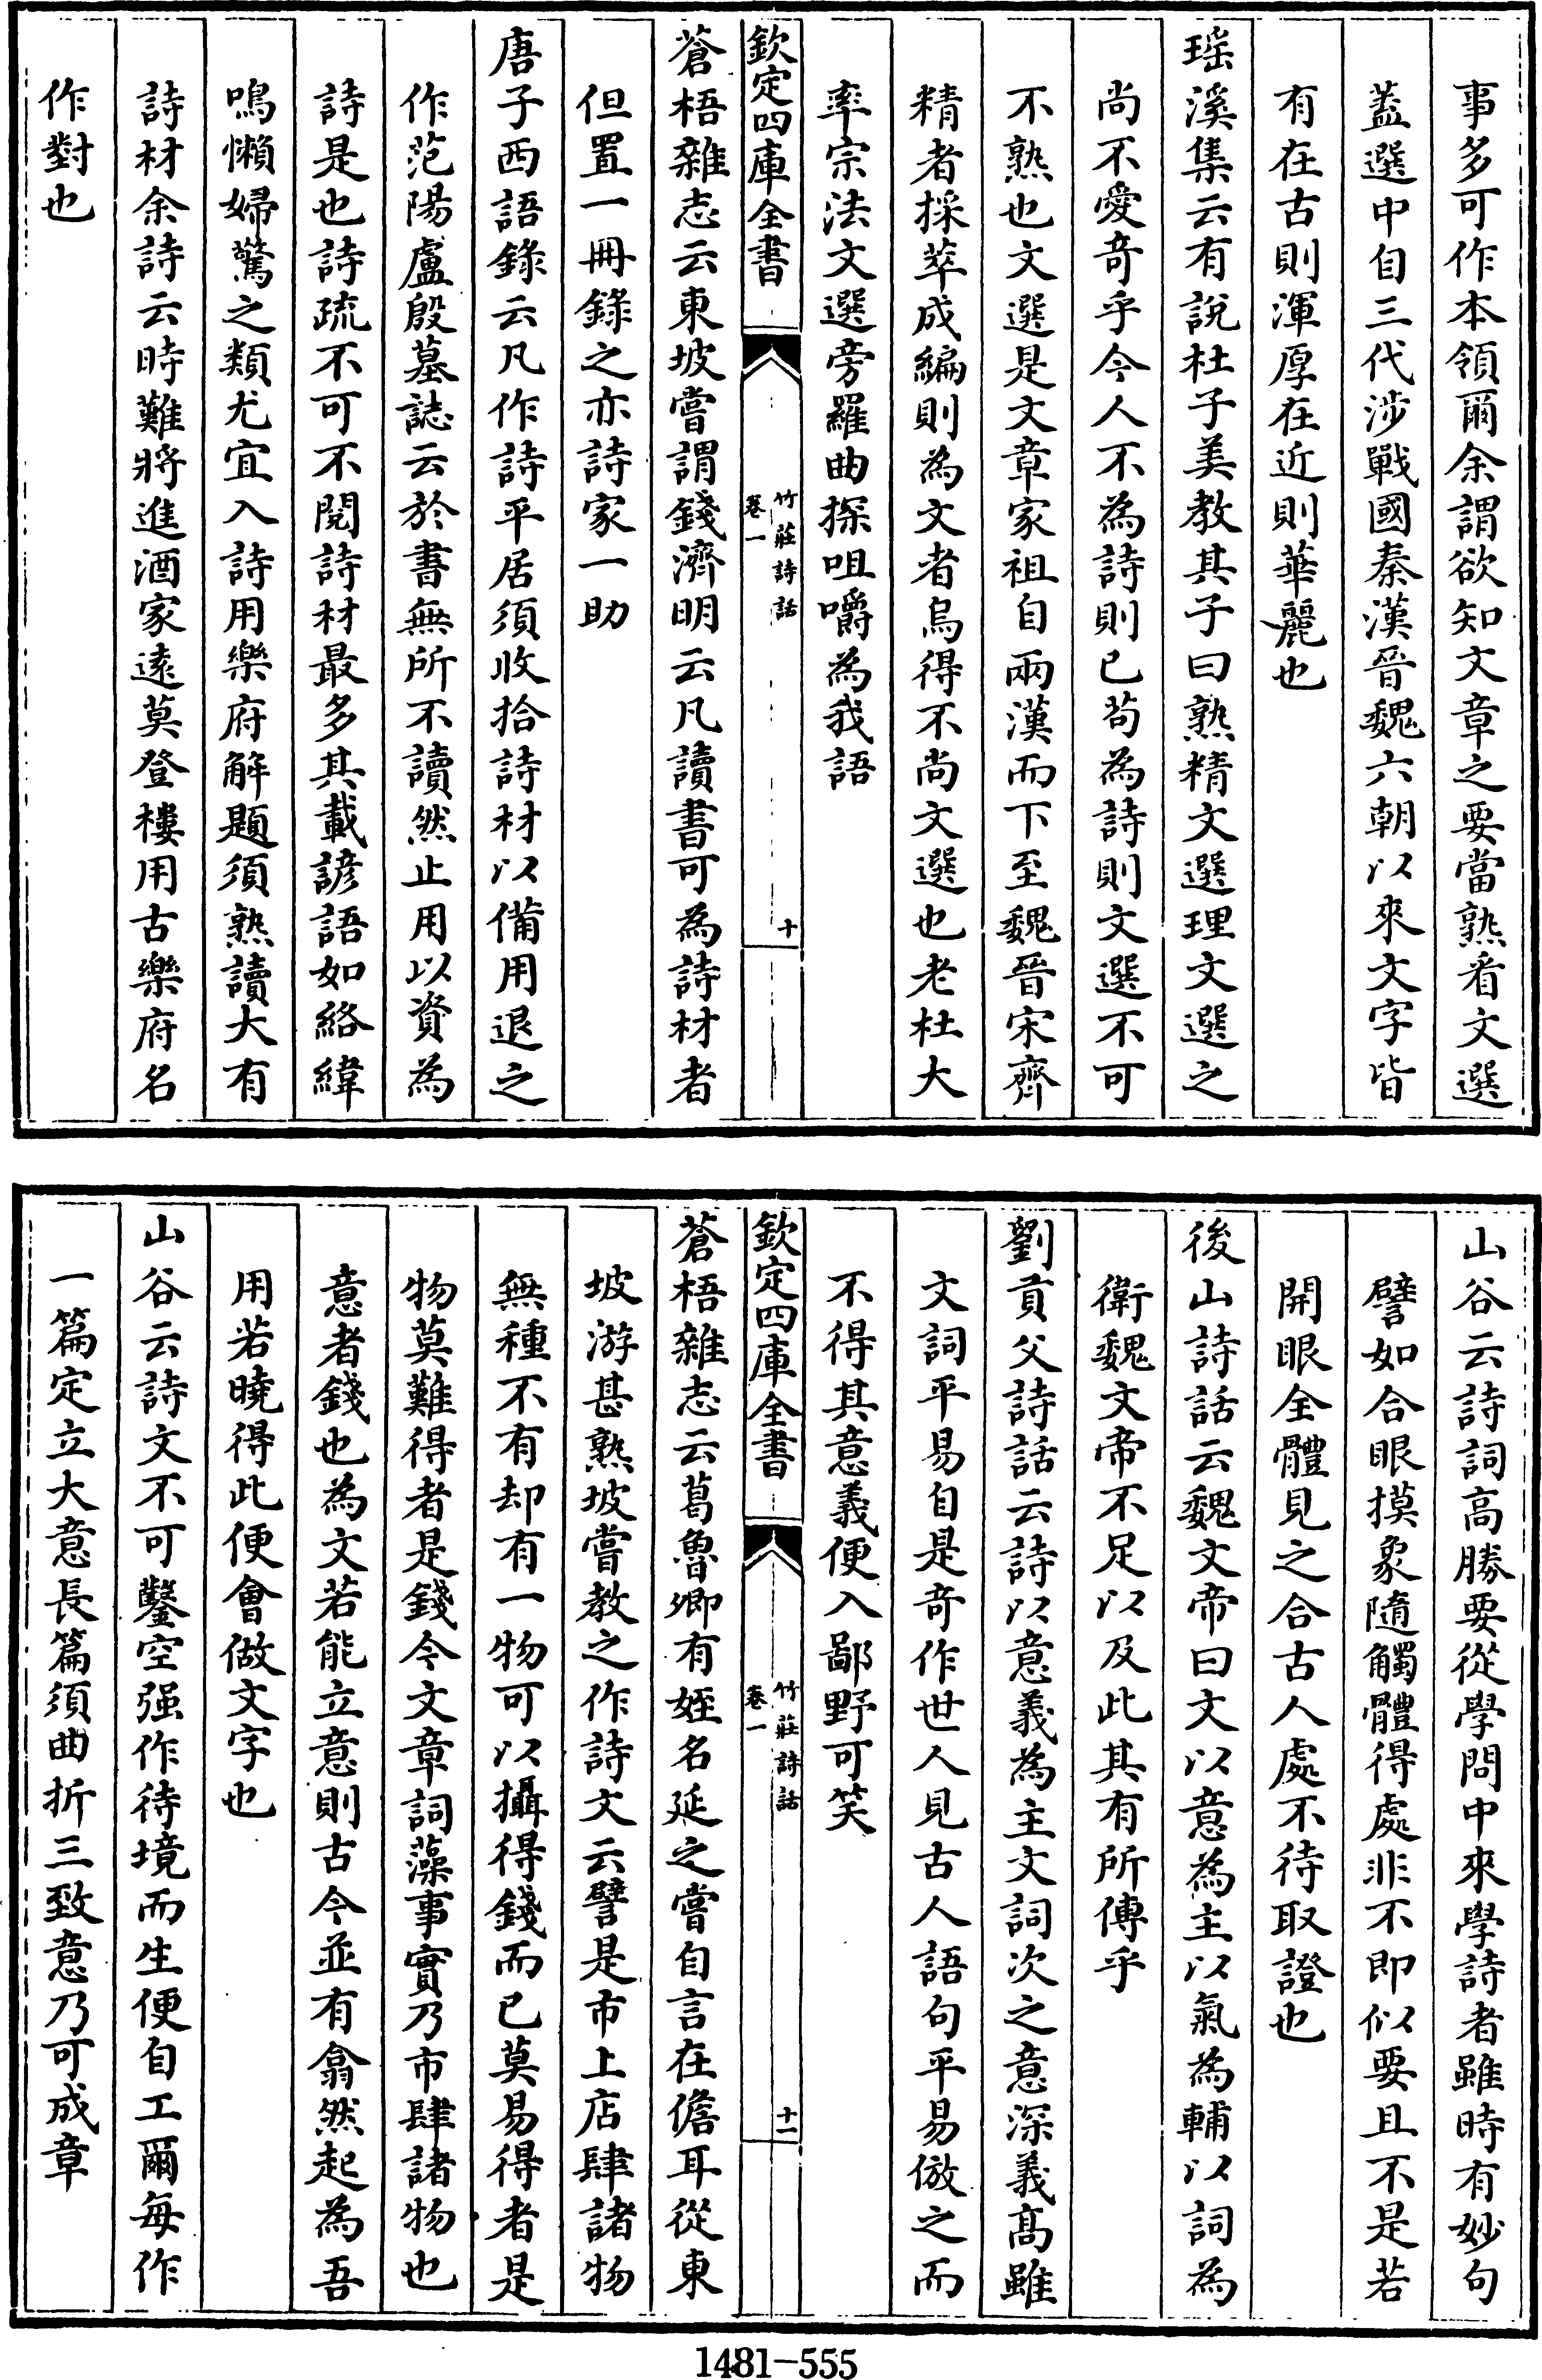 事多可作本領爾余謂欲知文章之要當熟看文選
蓋選中自三代渉戰國秦漢晉魏六朝以來文字皆
有在古則渾厚在近則華麗也
瑶溪集云有說杜子美教其子曰熟精文選理文選之
尚不愛奇乎今人不為詩則已苟為詩則文選不可
不熟也文選是文章家祖自兩漢而下至魏晉宋齊
精者採萃成編則為文者烏得不尚文選也老杜大
率宗法文選旁羅曲探咀嚼為我語
欽定四庫全書
竹莊詩話
卷一
十
蒼梧雜志云東坡嘗謂錢濟明云凡讀書可為詩材者
但置一冊錄之亦詩家一助
唐子西語錄云凡作詩平居須收拾詩材以備用退之
作范陽盧殷墓誌云於書無所不讀然止用以資為
詩是也詩疏不可不閱詩材最多其載諺語如絡緯
鳴懶婦驚之類尤宜入詩用樂府解題須熟讀大有
詩材余詩云時難將進酒家逺莫登樓用古樂府名
作對也
山谷云詩詞高勝要從學問中來學詩者雖時有妙句
譬如合眼摸象隨觸體得處非不即似要且不是若
開眼全體見之合古人處不待取證也
後山詩話云魏文帝曰文以意為主以氣為輔以詞為
衛魏文帝不足以及此其有所傳乎
劉貢父詩話云詩以意義為主文詞次之意深義髙雖
文詞平易自是奇作世人見古人語句平易倣之而
不得其意義便入鄙野可笑
欽定四庫全書
竹莊詩話
卷一
十一
蒼梧雜志云葛魯卿有姪名延之嘗自言在儋耳從東
坡游甚熟坡嘗教之作詩文云譬是市上店肆諸物
無種不有却有一物可以攝得錢而已莫易得者是
物莫難得者是錢今文章詞藻事實乃市肆諸物也
意者錢也為文若能立意則古今並有翕然起為吾
用若曉得此便會做文字也
山谷云詩文不可鑿空强作待境而生便自工爾每作
一篇定立大意長篇須曲折三致意乃可成章
1481-555